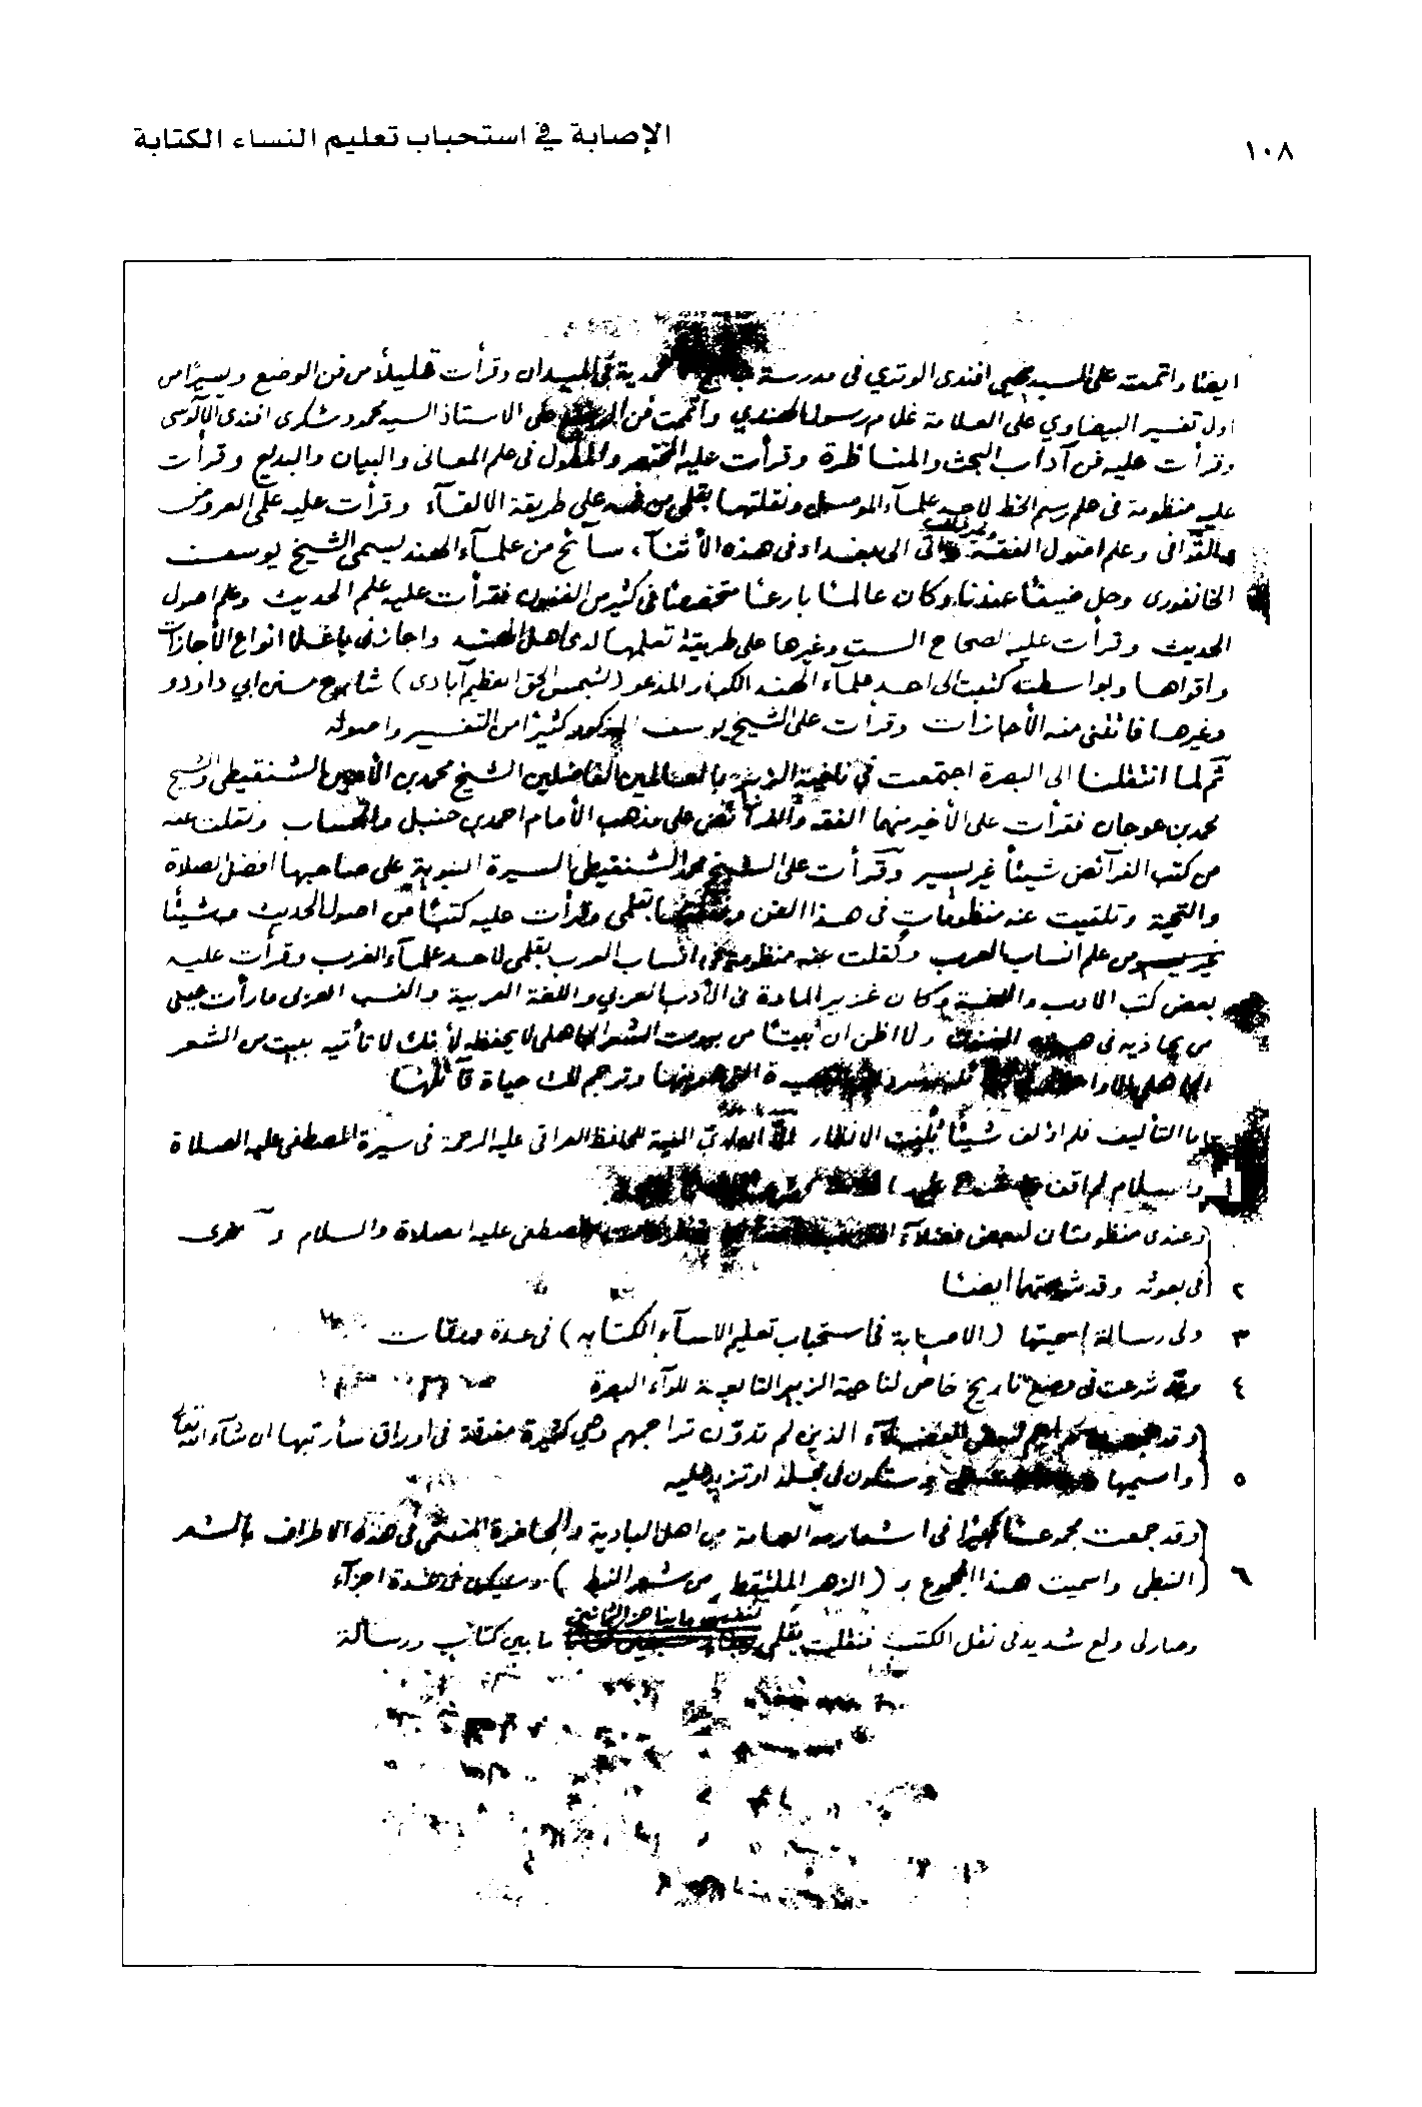 ١٠٨
الإصابة في استحباب تعليم النساء الكتابة
ايضا واتممته على السيد يحيى افندى الوتري فى مدرسة جامع محمدية فى الميدان وقرأت قليلاً من فن الوضع ويسيرًا من
اول تفسير البيضاوي على العلامة غلام رسول الهندي واتممت فن على الاستاذ السيد محمود شكرى افندى الآلوسى
وقرأت عليه فن آداب البحث والمناظرة وقرأت عليه المختصر والمطول فى علم المعانى والبيان والبديع وقرأت
عليه منظومة فى علم رسم الخط لاحد علمآء الموصل ونقلتها بقلمى من فمه على طريقة الالقآء وقرأت عليه على العروض
والقوافى وعلم اصول الفقه الى بغداد فى هذه الأثنآء سآئح من علمآء الهند يسمى الشيخ يوسف
الخانفورى وحل ضيفًا عندنا وكان عالمًا بارعًا متخصصًا فى كثير من الفنون فقرأت عليه علم الحديث وعلم اصول
الحديث وقرأت عليه الصحاح الست وغيرها على طريقة تعلمها لدى اهل الهند واجازنى باعلا انواع الأجازات
واقواها وبواسطته كتبت الى احد علمآء الهند الكبار المدعو (شمس الحق العظيم آبادى) شارح سنن ابي داودو
وغيرها فاتتنى منه الأجازات وقرأت على الشيخ يوسف المذكور كثيرًا من التفسير واصوله
ثم لما انتقلنا الى البصرة اجتمعت فى ناحية الزبير بالعالمين الفاضلين الشيخ محمد بن الأمين الشنقيطى والشيخ
محمد بن عوجان فقرأت على الأخير منهما الفقه والفرآئض على مذهب الأمام احمد بن حنبل والحساب ونقلت عنه
من كتب الفرآئض شيئًا غير يسير وقرأت على الشيخ محمد الشنقيطى السيرة النبوية على صاحبها افضل الصلاة
والتحية وتلقيت عنه منظومات فى هذا الفن ونقلتها بقلمى وقرأت عليه كتبًا من اصول الحديث وشيئًا
غير يسير من علم انساب العرب ونقلت عنه منظومة فى انساب العرب بقلمى لاحد علمآء الغرب وقرأت عليه
بعض كتب الادب واللغة وكان غزير المادة فى الأدب العربي واللغة العربية والنسب العربى ما رأت عينى
من يحاذيه فى هذه الفنون ولا اظن ان بيتًا من بيوت الشعر الجاهلى لا يحفظه لأنك لا تأتيه ببيت من الشعر
الجاهلى الا التى هو منها وترجم لك حياة قآئلها
اما التأليف فلم اؤلف شيئًا يلفت الانظار الفية للحافظ العراقى عليه الرحمة فى سيرة المصطفى عليه الصلاة
١ والسلام لم اقف
وعندى منظومتان لبعض فضلآء المصطفى عليه الصلاة والسلام و
٢ فى بعوثه وقد شرحتهما ايضًا
٣ ولى رسالة اسميتها (الاصابة فى استحباب تعليم النسآء الكتابه) فى عدة ورقات
٤ وقد شرعت فى وضع تاريخ خاص لناحية الزبير التابعة للوآء البصرة
وقد الذين لم تدوّن تراجمهم وهى كثيرة مفرقة فى اوراق سأرتبها ان شآء الله تعالى
٥ واسميها وستكون فى مجلد او تزيد عليه
وقد جمعت مجموعًا كبيرًا فى اشعار العامة من اهل البادية والحاضرة فى هذه الاطراف بالشعر
٦ النبطى واسميت هذا المجموع بـ (الزهر الملتقط من شعر النبط) وسيكون فى عدة اجزآء
وصار لى ولع شديد فى نقل الكتب فنقلت بقلمى لنفسى ما يناهز الثمانين ما بين كتاب ورسالة